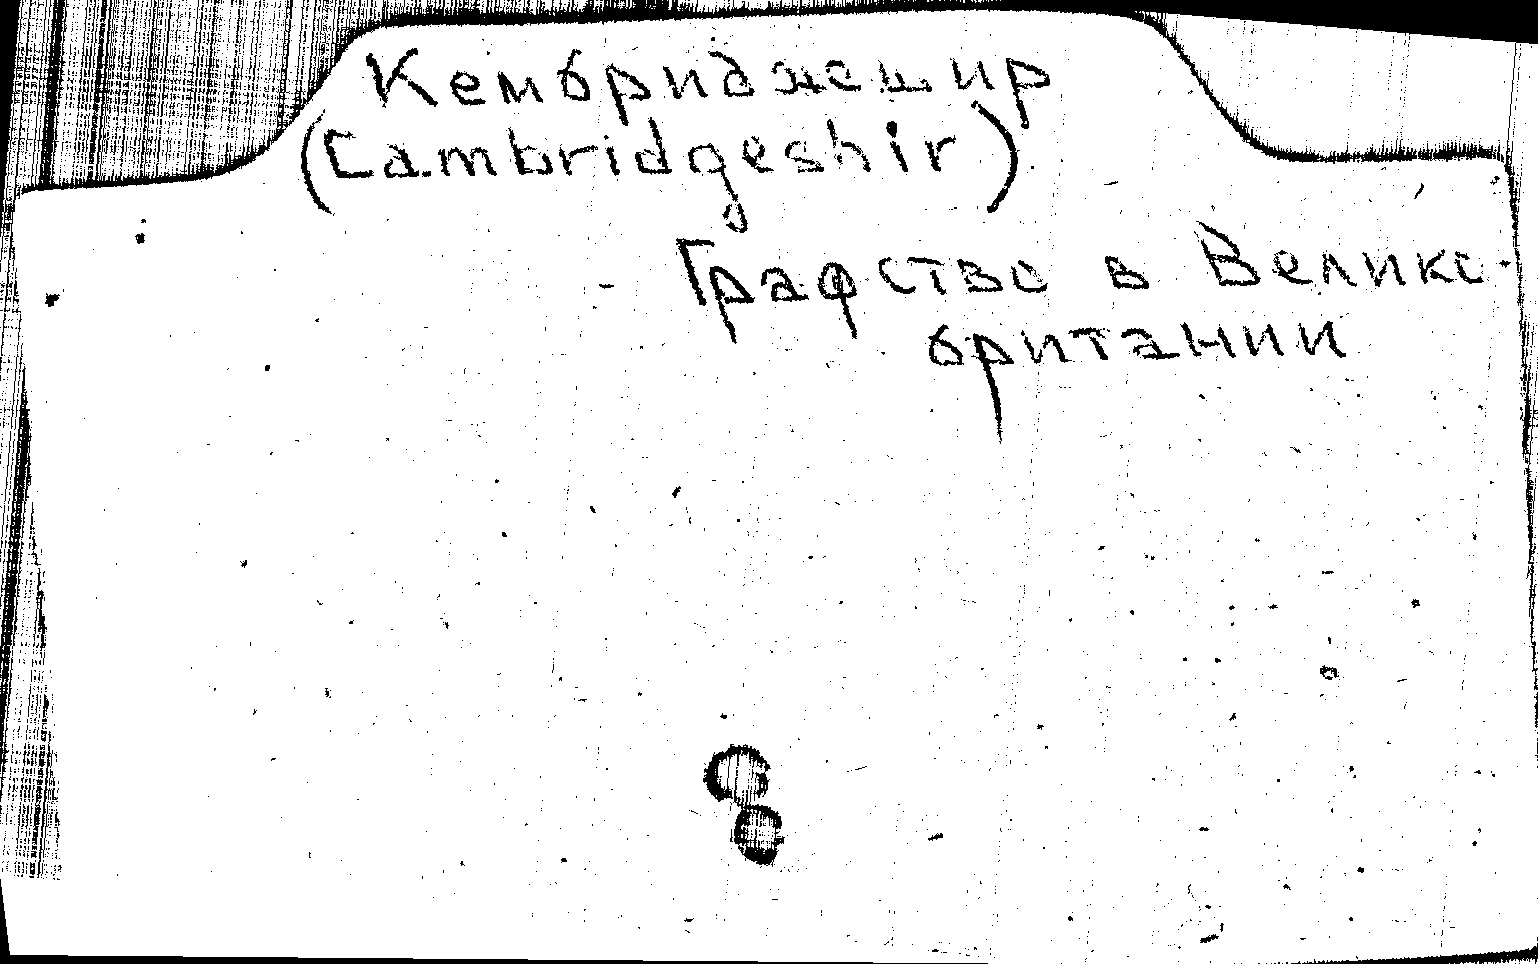 Кембриджешир
(Cambridgeshir)
- Графство в Велико-
британии